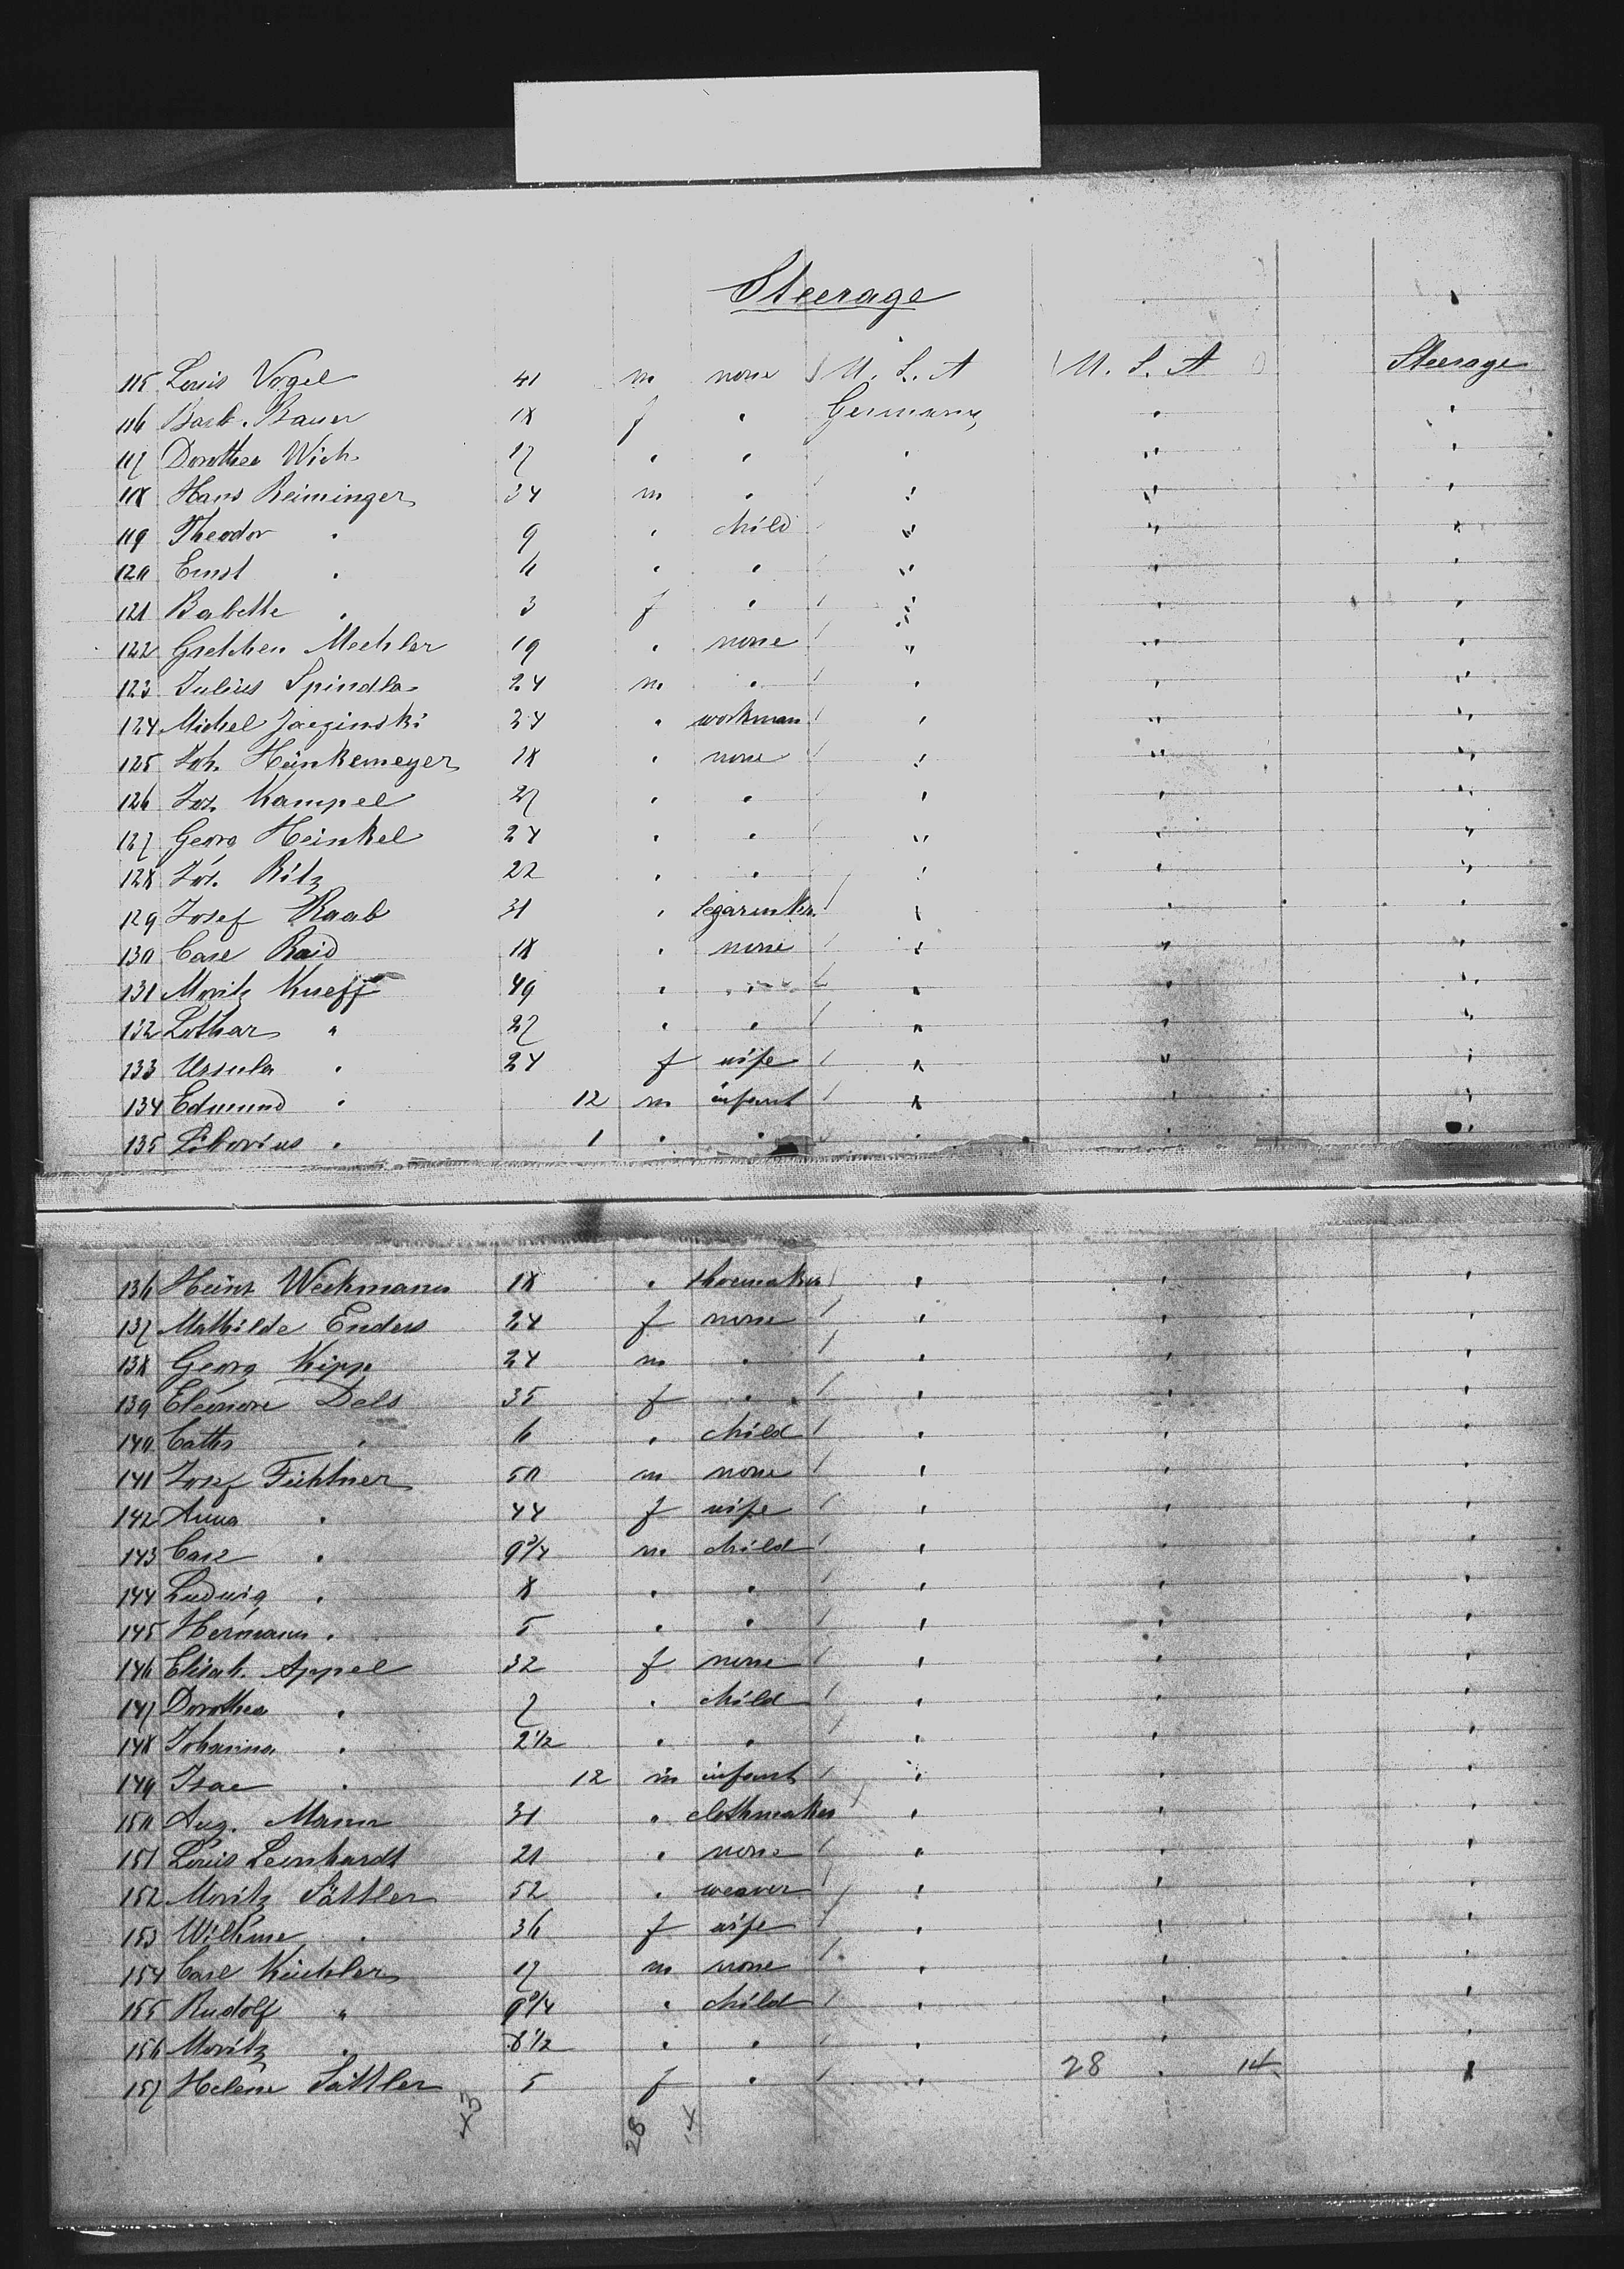 Steerage
115 Louis Vogel 41 m none U. S. A U. S. A Steerage
116 Barb. Bauer 18 f " Germany " "
117 Dorothea Wich 17 " " " " "
118 Hans Reiminger 34 m " " " "
119 Theodor " 9 " child " " "
120 Ernst " 6 " " " " "
121 Babette " 3 f " " " "
122 Gretchen Mechler 19 " none " " "
123 Julius Spindler 24 m " " " "
124 Michel 24 " workman " " "
125 Joh. Heinkemeyer 18 " none " " "
126 Jos. Kampel 27 " " " " "
127 Georg Heinkel 24 " " " " "
128 Jos. Ritz 22 " " " " "
129 Josef Raab 31 " " " "
130 Carl Raid 18 " none " " "
131 Moritz Kneff 49 " " " " "
132 Lothar " 27 " " " " "
133 Ursula " 24 f wife " " "
134 Edmund " 12 m infant " " "
135 Liborius " 1 " " " " "
136 Heinr Weckmann 18 " shoemaker " " "
137 Mathilde Enders 24 f none " " "
138 Georg Kipp 24 m " " " "
139 Eleonore Dels 35 f " " " "
140 Cath " 6 " child " " "
141 Josef Füchtner 50 m none " " "
142 Anna " 44 f wife " " "
143 Carl " 9 3/4 m child " " "
144 Ludwig " 8 " " " " "
145 Hermann " 5 " " " " "
146 Elisab. Appel 32 f none " " "
147 Dorothea " 7 " child " " "
148 Johanna " 2 1/2 " " " " "
149 Isac " 12 m infant " " "
150 Aug. Mann 31 " clothmaker " " "
151 Louis Leonhardt 21 " none " " "
152 Moritz Sättler 52 " weaver " " "
153 Wilhme " 36 f wife " " "
154 Carl Küchler 17 m none " " "
155 Rudolf " 9 3/4 " child " " "
156 Moritz " 8 1/2 " " " " "
157 Helene Sättler 5 f " " 28 " 14 "
43 28 14